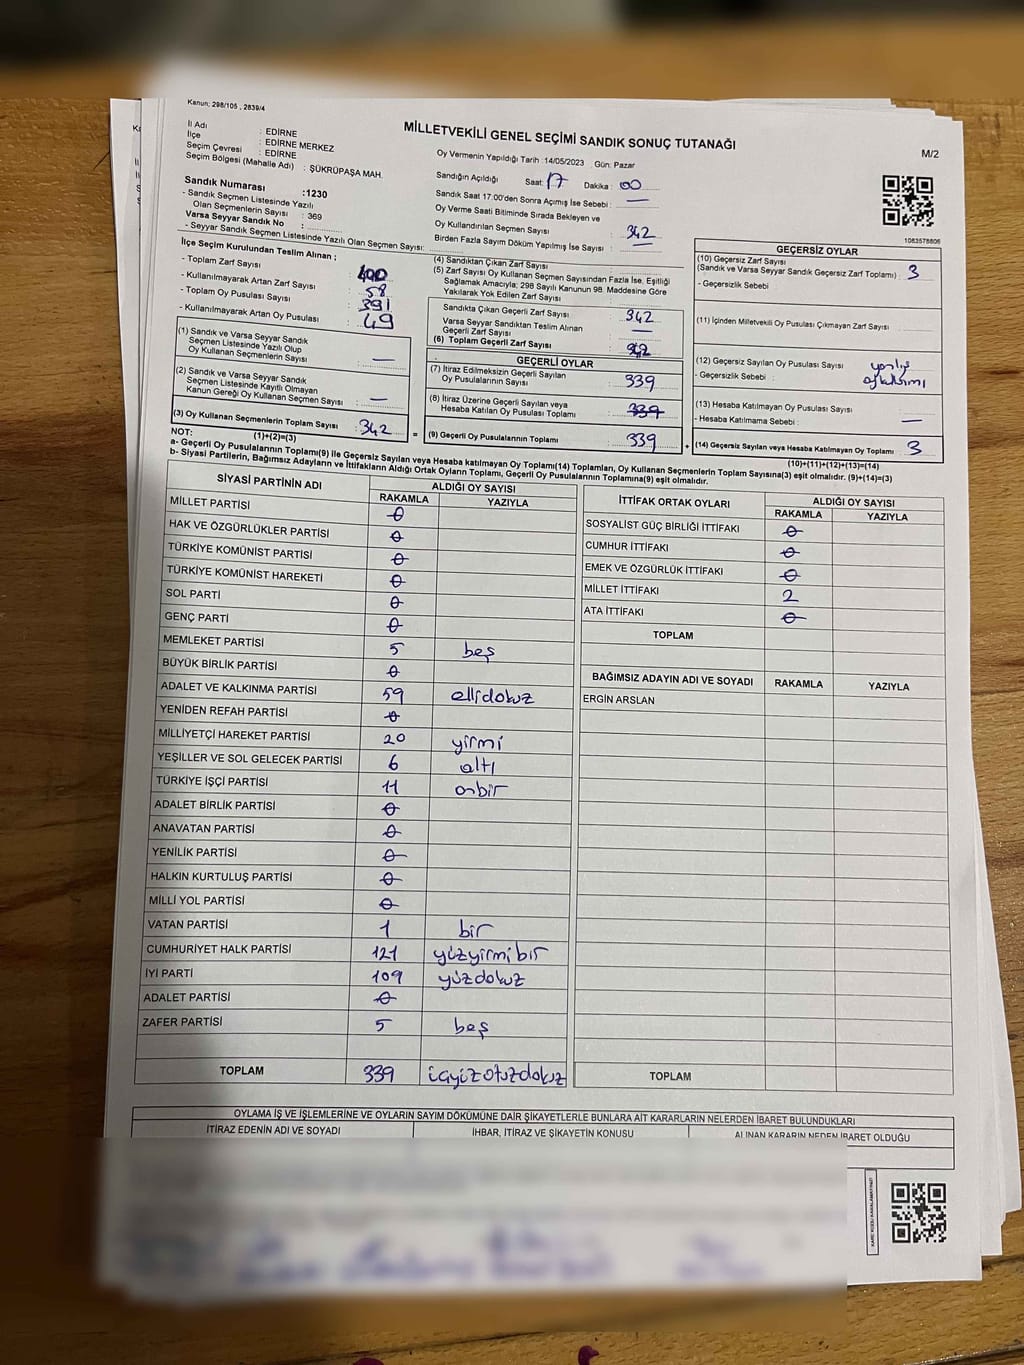 Kanun; 298/105 , 2839/4
MİLLETVEKİLİ GENEL SEÇİMİ SANDIK SONUÇ TUTANAĞI
M/2
İl Adı : EDİRNE
İlçe : EDİRNE MERKEZ
Seçim Çevresi : EDİRNE
Seçim Bölgesi (Mahalle Adı) : ŞÜKRÜPAŞA MAH.
Sandık Numarası :1230
- Sandık Seçmen Listesinde Yazılı
Olan Seçmenlerin Sayısı : 369
Varsa Seyyar Sandık No :
- Seyyar Sandık Seçmen Listesinde Yazılı Olan Seçmen Sayısı:
Oy Vermenin Yapıldığı Tarih :14/05/2023 Gün: Pazar
Sandığın Açıldığı Saat: 17 Dakika : 00
Sandık Saat 17:00'den Sonra Açımış İse Sebebi : —
Oy Verme Saati Bitiminde Sırada Bekleyen ve
Oy Kullandırılan Seçmen Sayısı : 342
Birden Fazla Sayım Döküm Yapılmış İse Sayısı : —
1083578806
İlçe Seçim Kurulundan Teslim Alınan ;
- Toplam Zarf Sayısı : 400
- Kullanılmayarak Artan Zarf Sayısı : 58
- Toplam Oy Pusulası Sayısı : 391
- Kullanılmayarak Artan Oy Pusulası : 49
(1) Sandık ve Varsa Seyyar Sandık
Seçmen Listesinde Yazılı Olup
Oy Kullanan Seçmenlerin Sayısı : —
(2) Sandık ve Varsa Seyyar Sandık
Seçmen Listesinde Kayıtlı Olmayan
Kanun Gereği Oy Kullanan Seçmen Sayısı : —
(3) Oy Kullanan Seçmenlerin Toplam Sayısı : 342
(1)+(2)=(3)
(4) Sandıktan Çıkan Zarf Sayısı :
(5) Zarf Sayısı Oy Kullanan Seçmen Sayısından Fazla İse, Eşitliği
Sağlamak Amacıyla; 298 Sayılı Kanunun 98. Maddesine Göre
Yakılarak Yok Edilen Zarf Sayısı :
Sandıkta Çıkan Geçerli Zarf Sayısı : 342
Varsa Seyyar Sandıktan Teslim Alınan
Geçerli Zarf Sayısı : —
(6) Toplam Geçerli Zarf Sayısı : 342
GEÇERLİ OYLAR
(7) İtiraz Edilmeksizin Geçerli Sayılan
Oy Pusulalarının Sayısı : 339
(8) İtiraz Üzerine Geçerli Sayılan veya
Hesaba Katılan Oy Pusulası Toplamı : 339
= (9) Geçerli Oy Pusulalarının Toplamı : 339
GEÇERSİZ OYLAR
(10) Geçersiz Zarf Sayısı
(Sandık ve Varsa Seyyar Sandık Geçersiz Zarf Toplamı) : 3
- Geçersizlik Sebebi :
(11) İçinden Milletvekili Oy Pusulası Çıkmayan Zarf Sayısı :
(12) Geçersiz Sayılan Oy Pusulası Sayısı :
- Geçersizlik Sebebi :
(13) Hesaba Katılmayan Oy Pusulası Sayısı :
- Hesaba Katılmama Sebebi : —
+ (14) Geçersiz Sayılan veya Hesaba Katılmayan Oy Toplamı : 3
(10)+(11)+(12)+(13)=(14)
NOT:
a- Geçerli Oy Pusulalarının Toplamı(9) ile Geçersiz Sayılan veya Hesaba katılmayan Oy Toplamı(14) Toplamları, Oy Kullanan Seçmenlerin Toplam Sayısına(3) eşit olmalıdır. (9)+(14)=(3)
b- Siyasi Partilerin, Bağımsız Adayların ve İttifakların Aldığı Ortak Oyların Toplamı, Geçerli Oy Pusulalarının Toplamına(9) eşit olmalıdır.
SİYASİ PARTİNİN ADI ALDIĞI OY SAYISI
RAKAMLA YAZIYLA
MİLLET PARTİSİ 0
HAK VE ÖZGÜRLÜKLER PARTİSİ 0
TÜRKİYE KOMÜNİST PARTİSİ 0
TÜRKİYE KOMÜNİST HAREKETİ 0
SOL PARTİ 0
GENÇ PARTİ 0
MEMLEKET PARTİSİ 5 beş
BÜYÜK BİRLİK PARTİSİ 0
ADALET VE KALKINMA PARTİSİ 59 ellidokuz
YENİDEN REFAH PARTİSİ 0
MİLLİYETÇİ HAREKET PARTİSİ 20 yirmi
YEŞİLLER VE SOL GELECEK PARTİSİ 6 altı
TÜRKİYE İŞÇİ PARTİSİ 11 onbir
ADALET BİRLİK PARTİSİ 0
ANAVATAN PARTİSİ 0
YENİLİK PARTİSİ 0
HALKIN KURTULUŞ PARTİSİ 0
MİLLİ YOL PARTİSİ 0
VATAN PARTİSİ 1 bir
CUMHURİYET HALK PARTİSİ 121 yüzyirmi bir
İYİ PARTİ 109 yüzdokuz
ADALET PARTİSİ 0
ZAFER PARTİSİ 5 beş
TOPLAM 339 üçyüzotuzdokuz
İTTİFAK ORTAK OYLARI ALDIĞI OY SAYISI
RAKAMLA YAZIYLA
SOSYALİST GÜÇ BİRLİĞİ İTTİFAKI 0
CUMHUR İTTİFAKI 0
EMEK VE ÖZGÜRLÜK İTTİFAKI 0
MİLLET İTTİFAKI 2
ATA İTTİFAKI 0
TOPLAM
BAĞIMSIZ ADAYIN ADI VE SOYADI RAKAMLA YAZIYLA
ERGİN ARSLAN
TOPLAM
OYLAMA İŞ VE İŞLEMLERİNE VE OYLARIN SAYIM DÖKÜMÜNE DAİR ŞİKAYETLERLE BUNLARA AİT KARARLARIN NELERDEN İBARET BULUNDUKLARI
İTİRAZ EDENİN ADI VE SOYADI İHBAR, İTİRAZ VE ŞİKAYETİN KONUSU ALINAN KARARIN NEDEN İBARET OLDUĞU